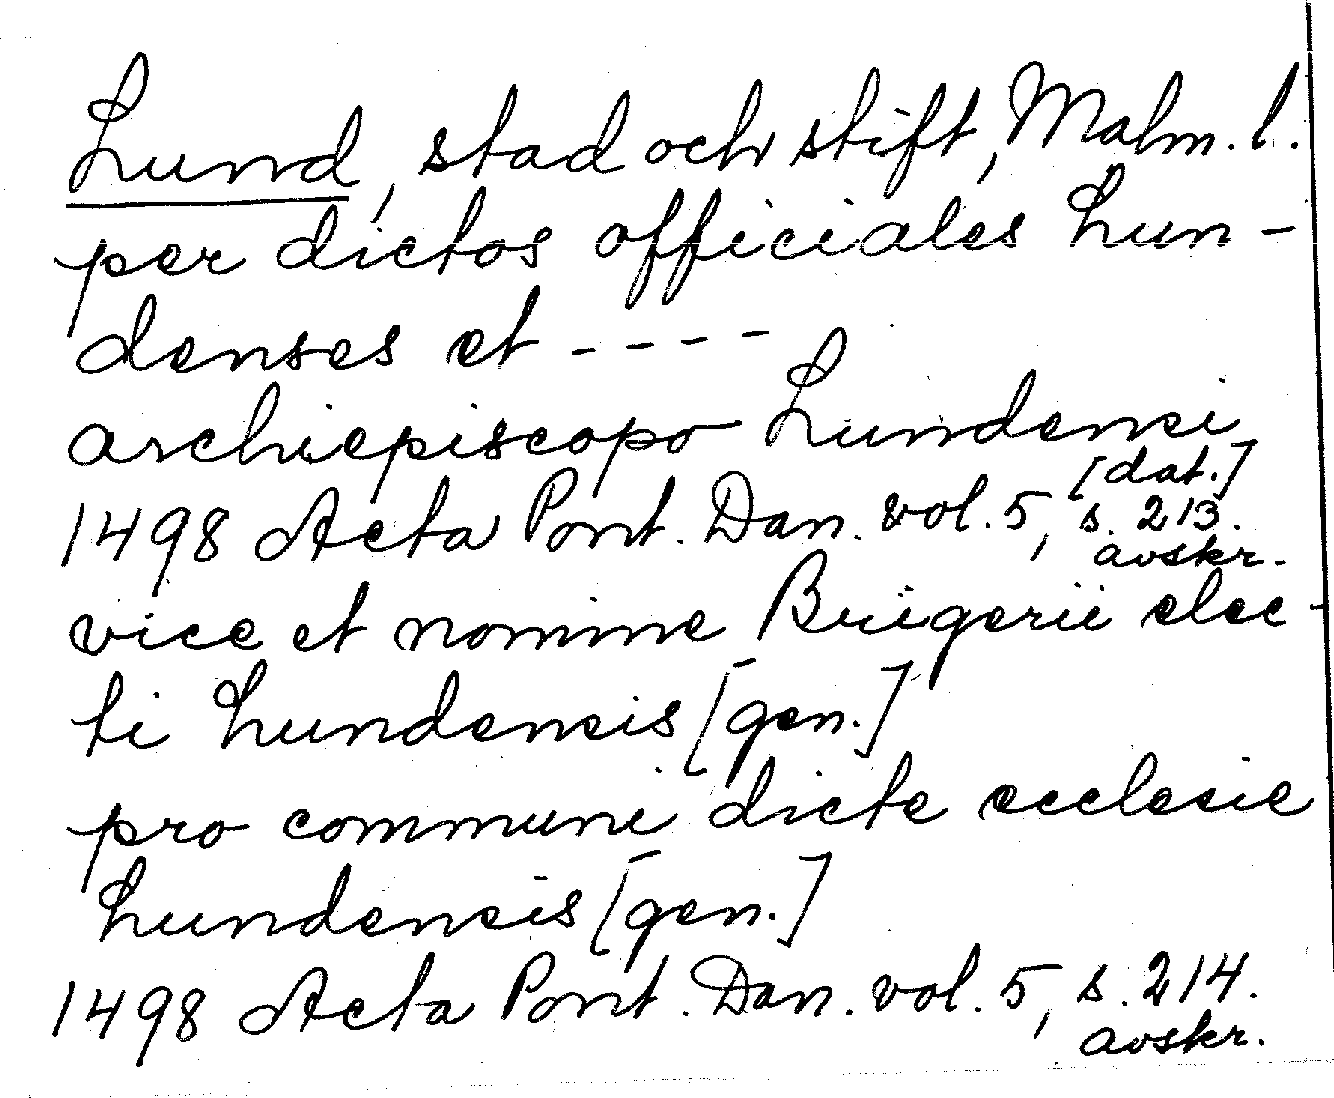 Lund, stad och stift, Malm. l.
per dictos officiales Lun-
denses et ----
archiepiscopo Lundensi
[dat.]
1498 Acta Pont. Dan. vol. 5, s. 213.
avskr.
vice et nomine Buigerii elec-
ti Lundensis [gen.]
pro communi dicte ecclesie
Lundensis [gen.]
1498 Acta Pont. Dan. vol. 5, s. 214.
avskr.